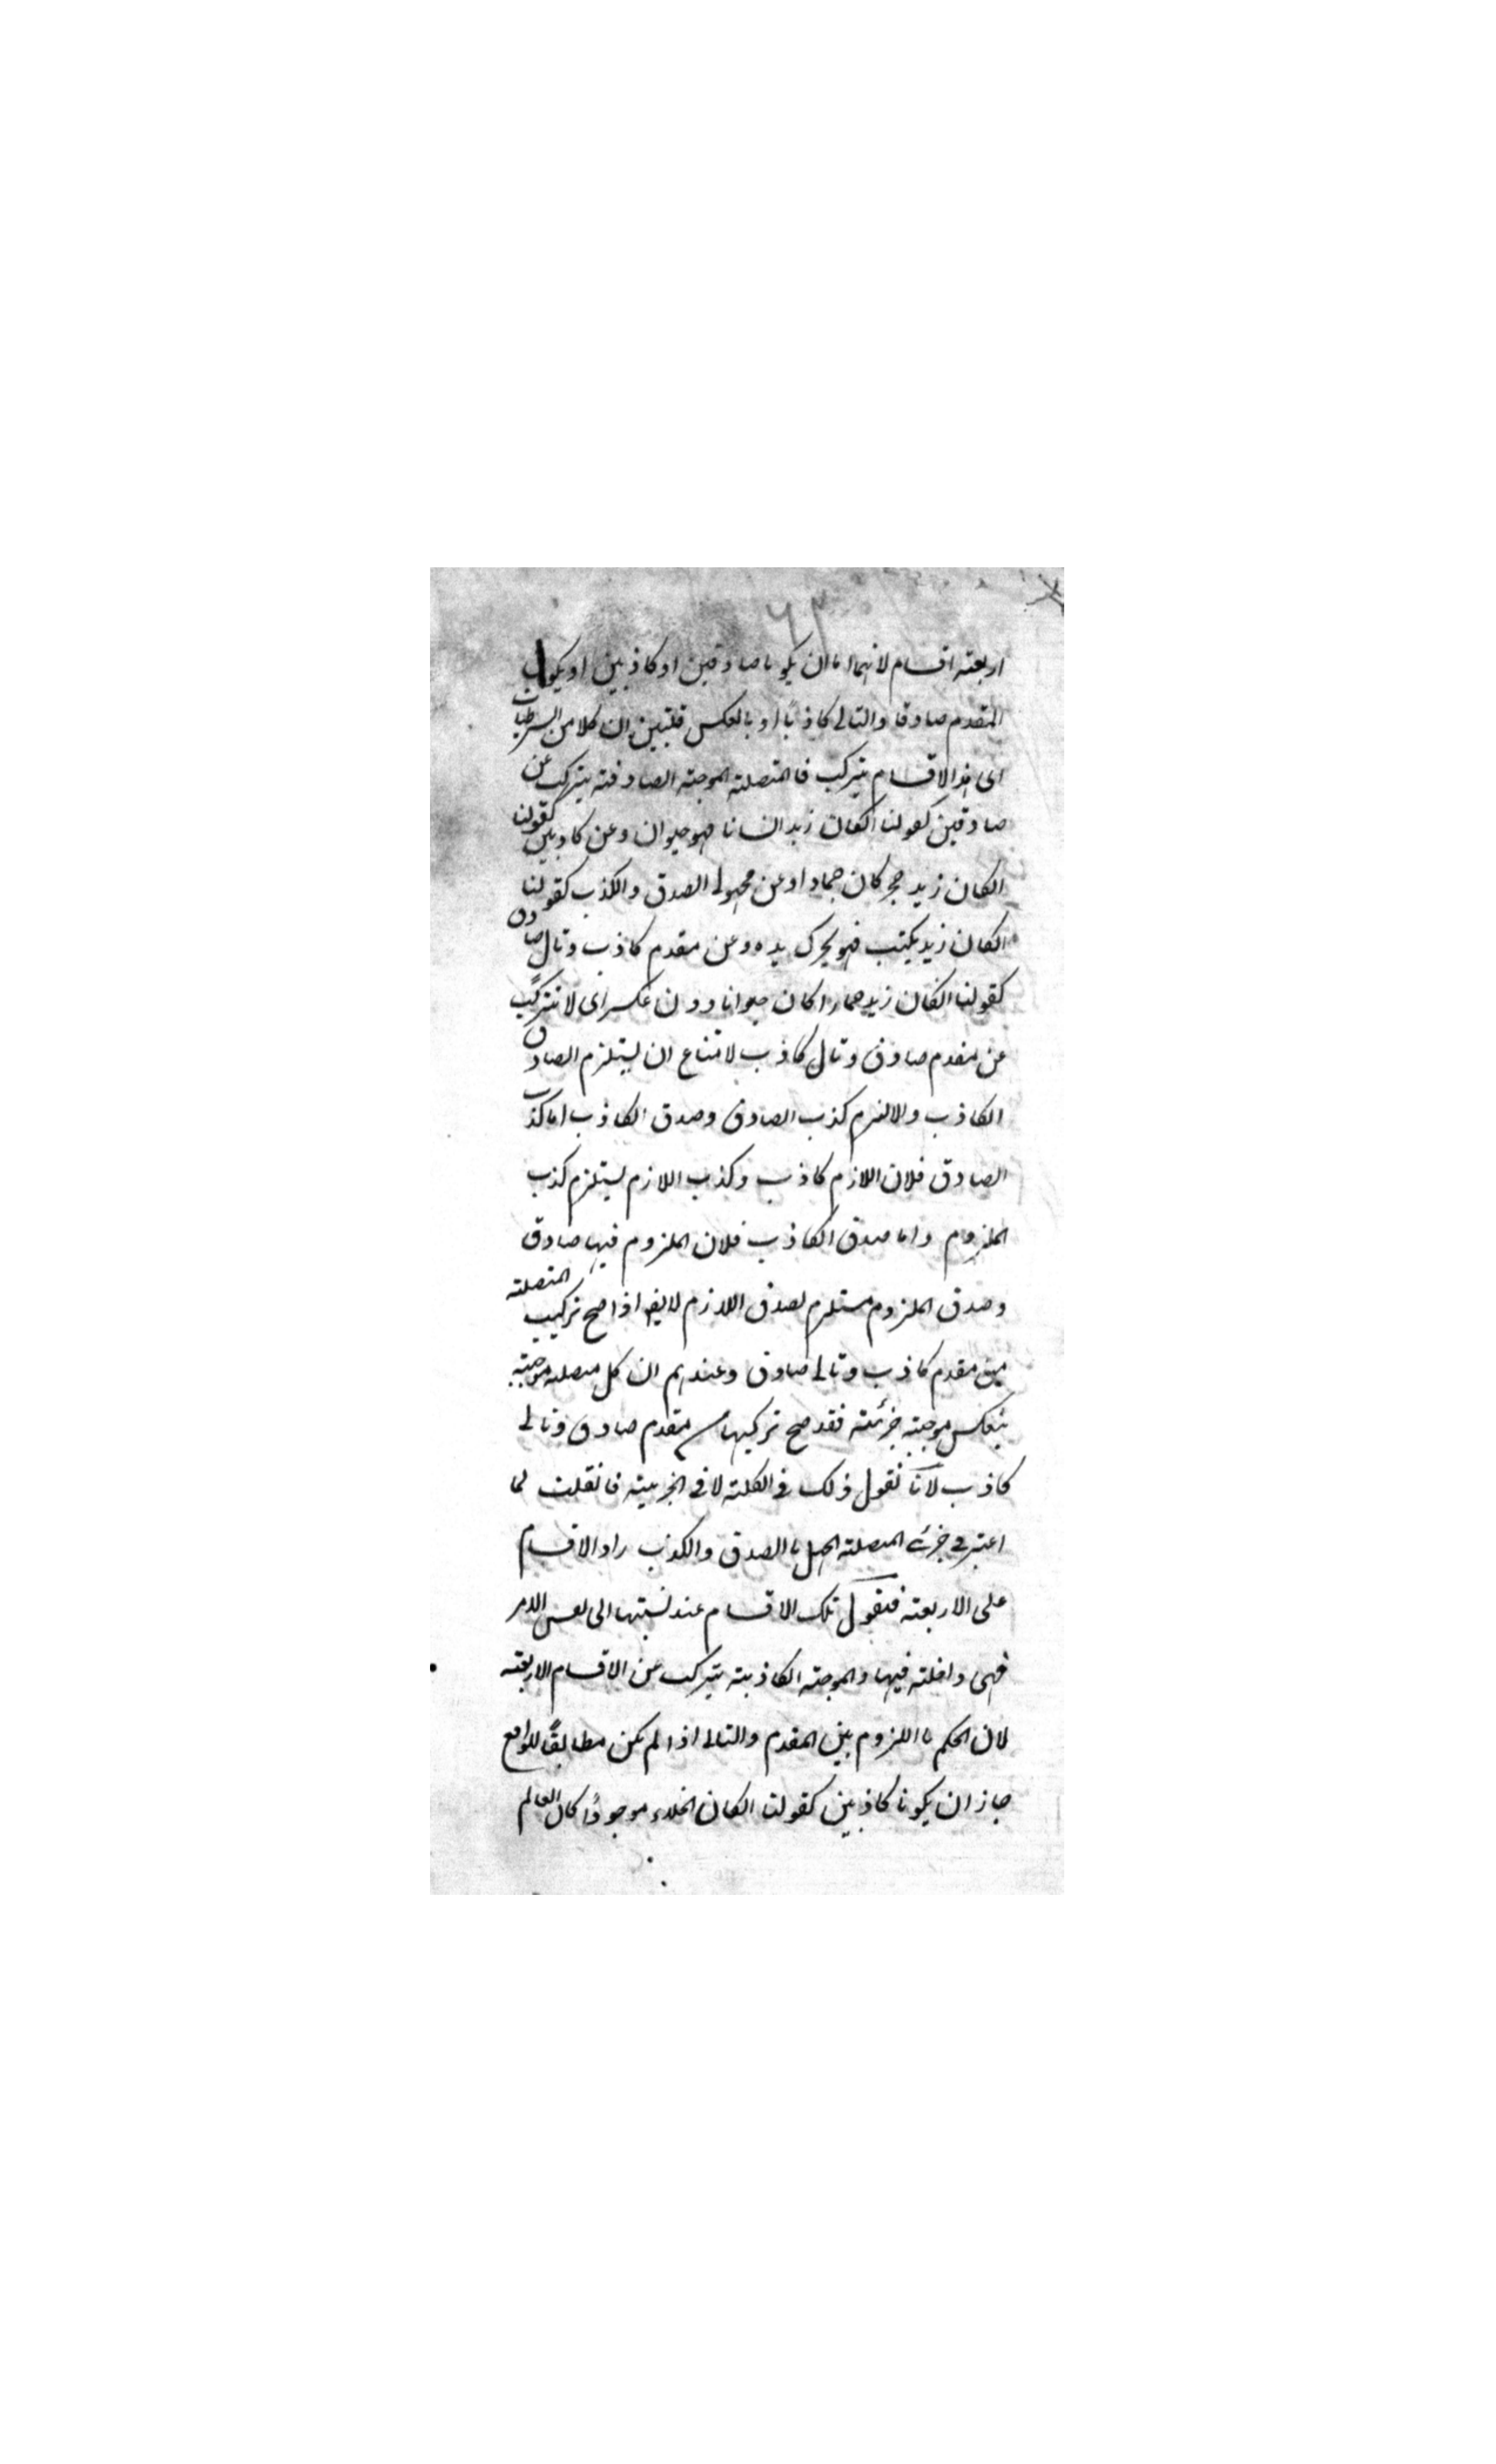 ٦٢
اربعته اقسام لانهما اما ان يكونا صادقين او كاذبين او يكون
المقدم صادقا والتالى كاذبا او بالعكس فلنبين ان كلا من الشرطيات
اى هذ الاقسام يتركب فالمتصلته الموجبته الصادقته يتركب عن
صادقين كقولنا انكان زيد انسانا فهو حيوان وعن كاذبين كقولنا
انكان زيد حجر كان جمادا وعن مجهولى الصدق والكذب كقولنا
انكان زيد يكتب فهو يحرك يده وعن مقدم كاذب وتال صادق
كقولنا انكان زيد حمارا كان حيوانا دون عكسه اى لا تتركب
عن مقدم صادق وتال كاذب لامتناع ان يستلزم الصادق
الكاذب والا لزم كذب الصادق وصدق الكاذب اما كذب
الصادق فلان اللازم كاذب وكذب اللازم يستلزم كذب
الملزوم واما صدق الكاذب فلان الملزوم فيها صادق
وصدق الملزوم مستلزم لصدق اللازم لا يقه اذا صح تركيب المتصلته
من مقدم كاذب وتالى صادق وعندهم ان كل متصله موجبته
ينعكس موجبته جزئته فقد صح تركيبها من مقدم صادق وتالى
كاذب لانا نقول ذلك فى الكلته لا فى الجزييته فانقلت لما
اعتبر فى جزئى المتصلته الجهل بالصدق والكذب زاد الاقسام
على الاربعته فنقول تلك الاقسام عند نسبتها الى نفس الامر
فهى داخلته فيها والموجبته الكاذبته يتركب عن الاقسام الاربعته
لان الحكم باللزوم بين المقدم والتالى اذا لم يكن مطابقًا للواقع
جاز ان يكونا كاذبين كقولنا انكان الخلاء موجودًا كان العالم